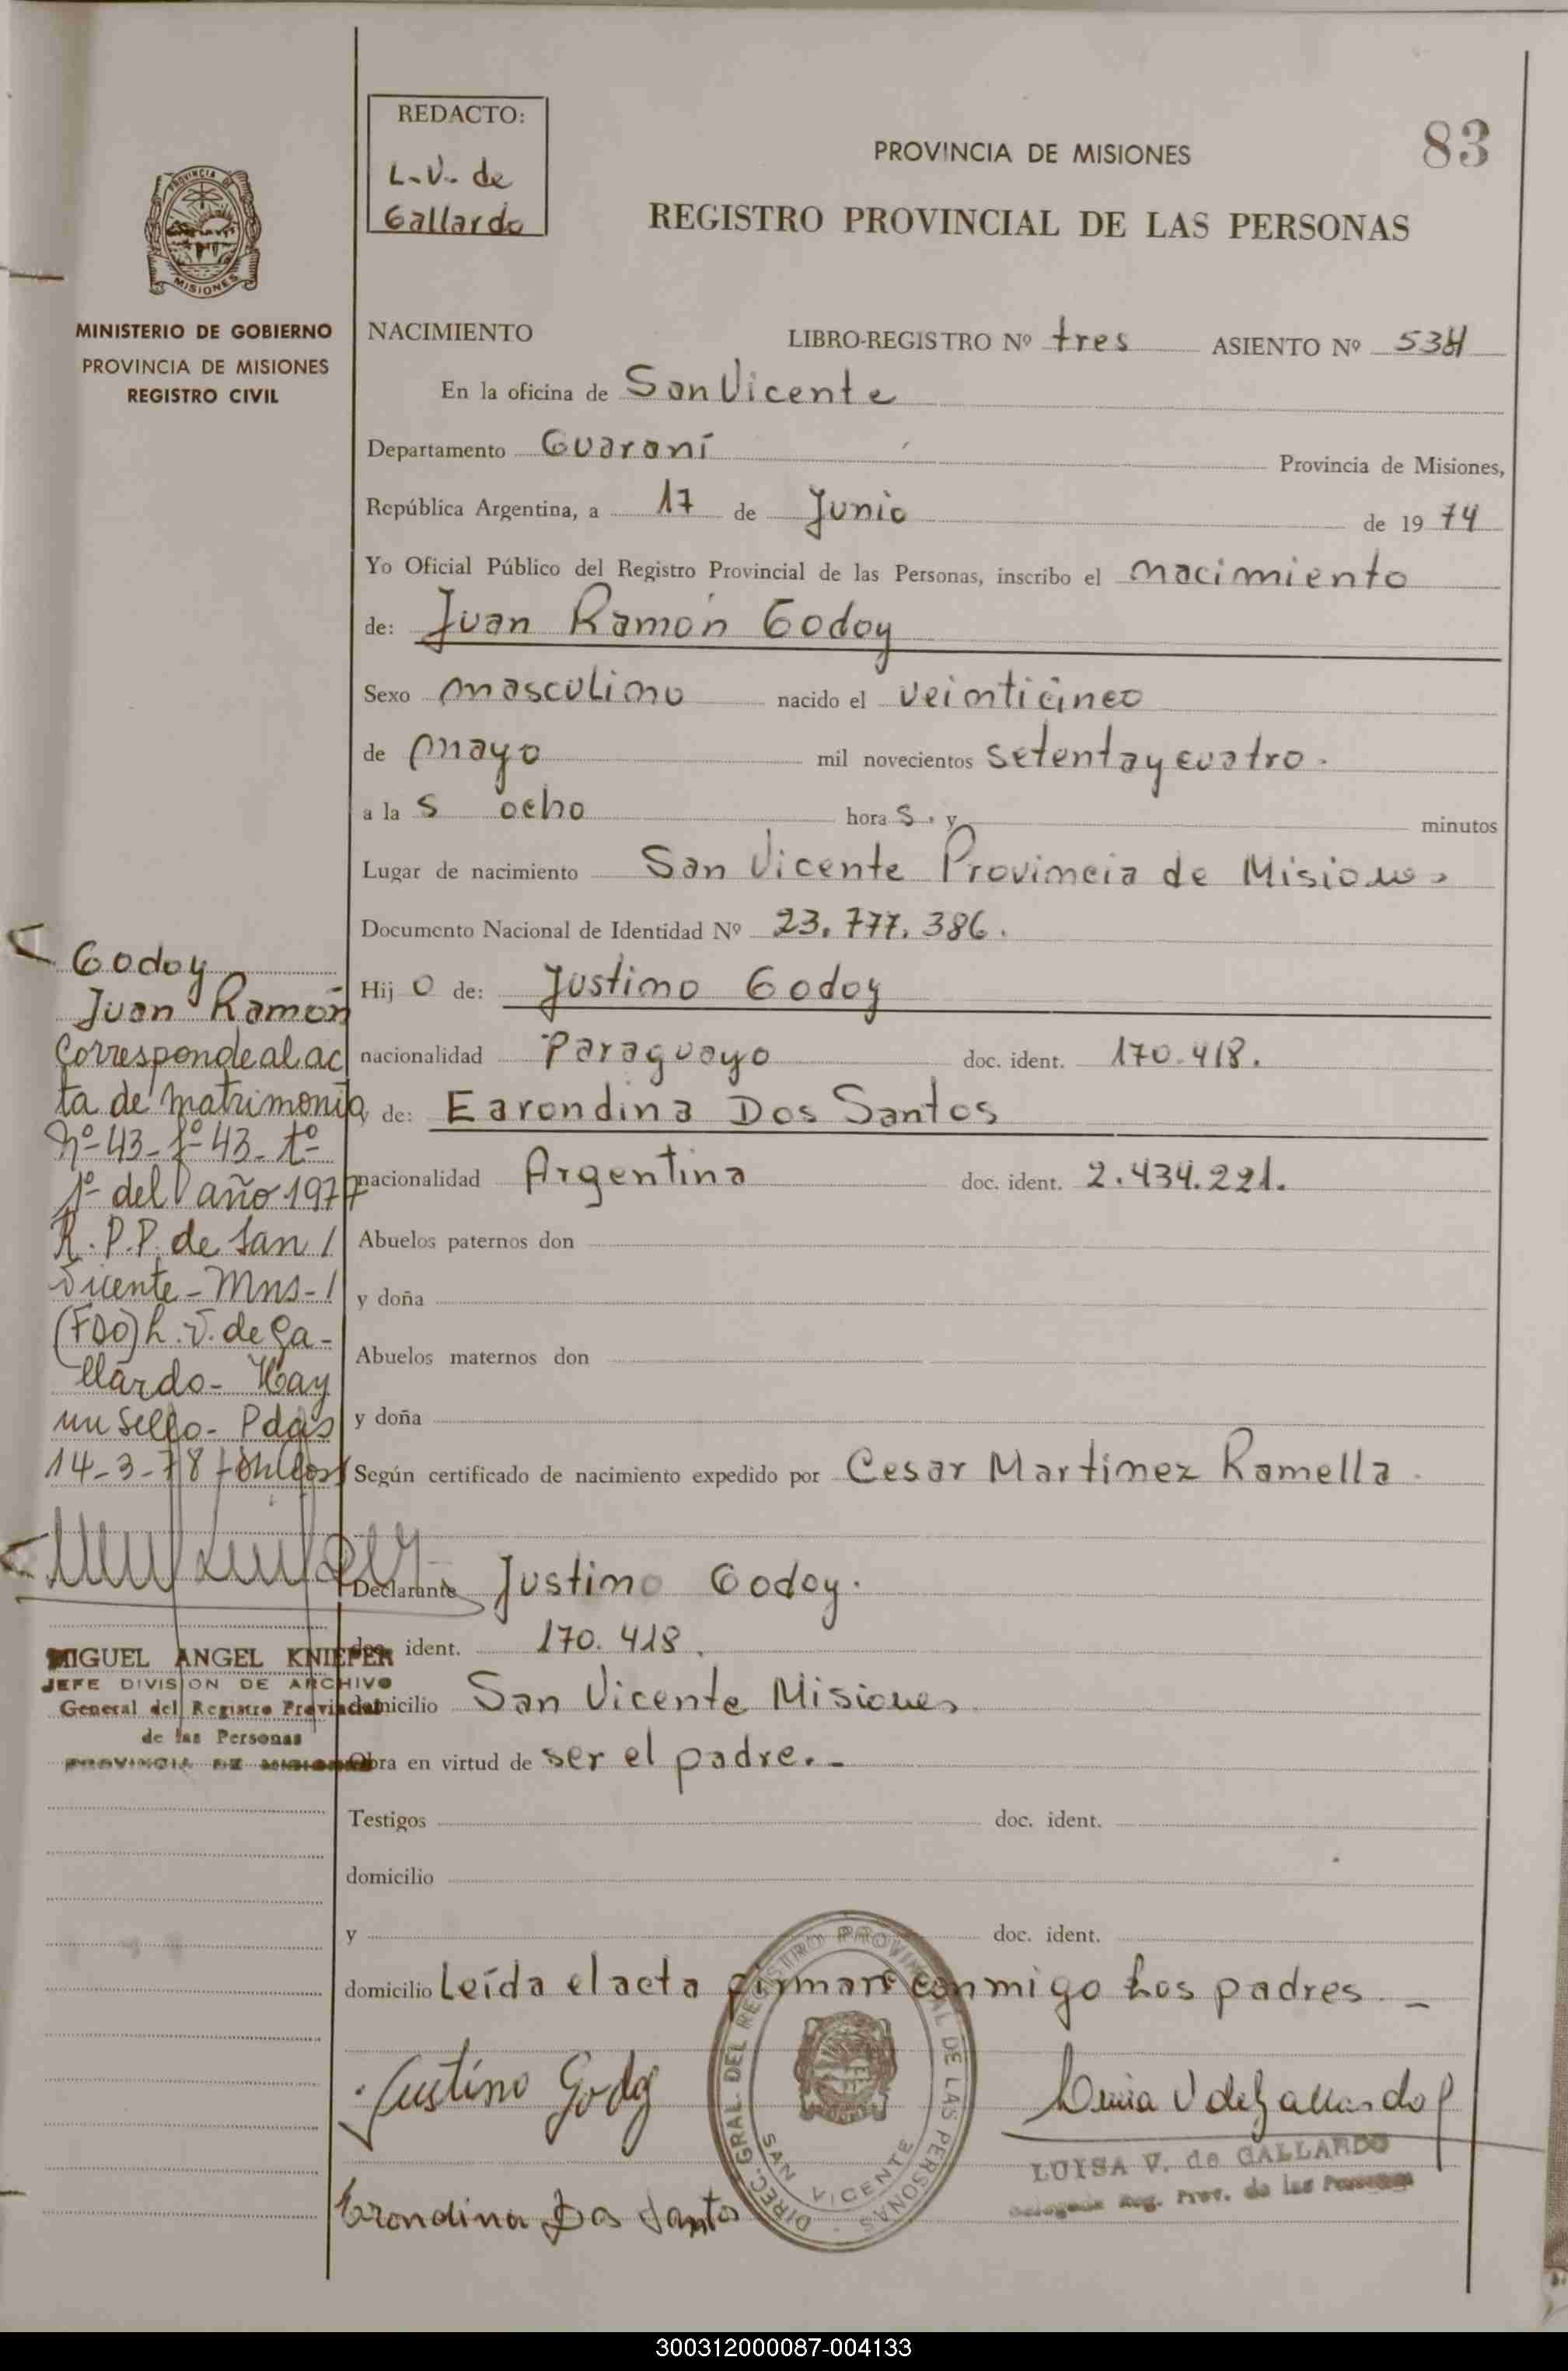 REDACTO:
L.V. de
Gallardo
83
PROVINCIA DE MISIONES
REGISTRO PROVINCIAL DE LAS PERSONAS
PROVINCIA DE
MISIONES
MINISTERIO DE GOBIERNO
PROVINCIA DE MISIONES
REGISTRO CIVIL
NACIMIENTO LIBRO-REGISTRO Nº tres ASIENTO Nº
En la oficina de San Vicente
Departamento Guaraní Provincia de Misiones,
República Argentina, a 17 de Junio de 19 74
Yo Oficial Público del Registro Provincial de las Personas, inscribo el nacimiento
de: Juan Ramón Godoy
Sexo masculino nacido el veinticinco
de mayo mil novecientos setenta y cuatro.
a la s ocho hora s. y minutos
Lugar de nacimiento San Vicente Provincia de Misiones
Documento Nacional de Identidad Nº 23.777.386.
Hij o de: Justino Godoy
nacionalidad Paraguayo doc. ident. 170.418.
y de: Earondina Dos Santos
nacionalidad Argentina doc. ident. 2.434.221.
Abuelos paternos don
y doña
Abuelos maternos don
y doña
Según certificado de nacimiento expedido por Cesar Martinez Ramella
Declarante Justino Godoy.
doc. ident. 170.418.
domicilio San Vicente Misiones
Obra en virtud de ser el padre.-
Testigos doc. ident.
domicilio
y doc. ident.
domicilio Leída el acta firman conmigo Los padres. -
Justino Godoy
Erondina Dos Santos
DIREC. GRAL. DEL REGISTRO PROVINCIAL DE LAS PERSONAS
SAN VICENTE
Luisa V de Gallardo
LUISA V. de GALLARDO
Delegada Reg. Prov. de las Personas
Godoy
Juan Ramón
Corresponde al ac
ta de matrimonio
Nº 43 - fº 43 - tº
1º del año 1977
R.P.P. de San /
Vicente - Mns - /
(FDO) L.V. de Ga-
llardo - Hay
un sello - Pdas
14-3-78
MIGUEL ANGEL KNIEPER
JEFE DIVISION DE ARCHIVO
General del Registro Provincial
de las Personas
PROVINCIA DE MISIONES
300312000087-004133